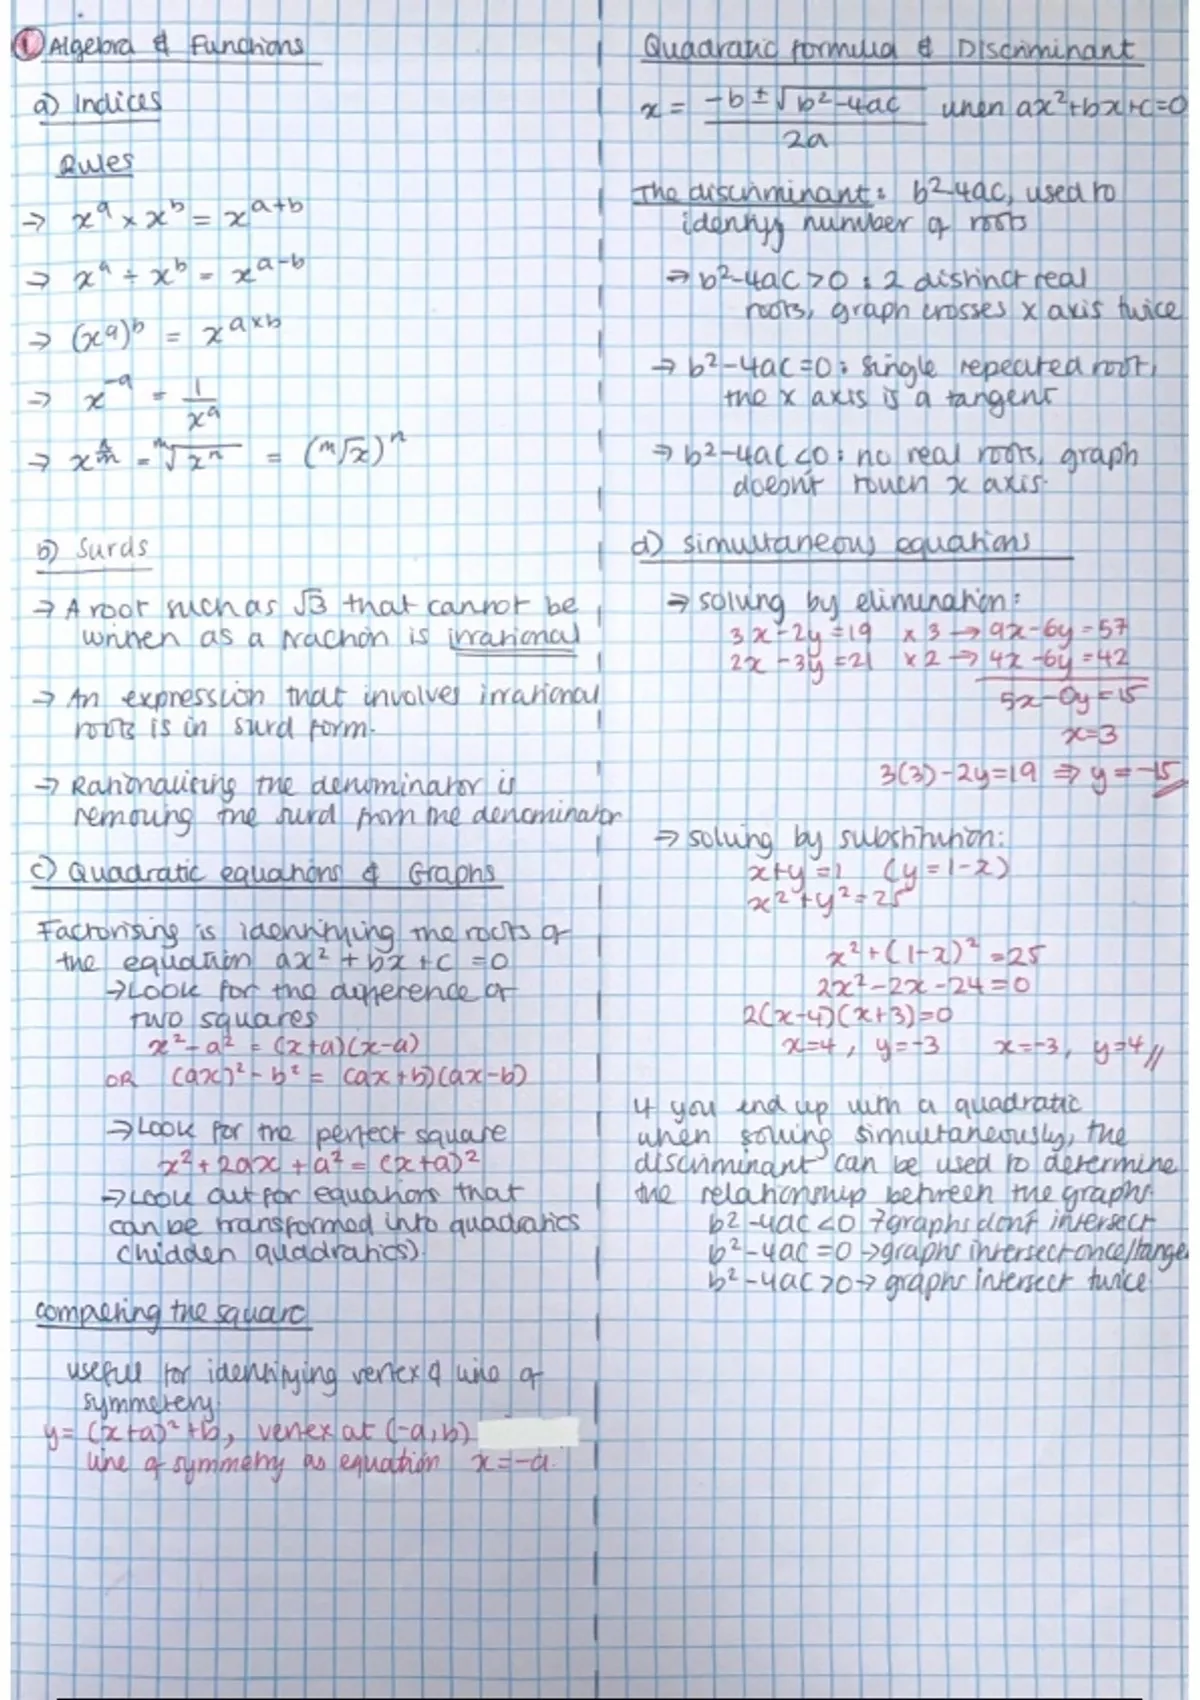 ① Algebra & Functions
a) Indices
Rules
→ xᵃ × xᵇ = xᵃ⁺ᵇ
→ xᵃ ÷ xᵇ = xᵃ⁻ᵇ
→ (xᵃ)ᵇ = x^(a×b)
→ x⁻ᵃ = 1/xᵃ
→ x^(n/m) = ᵐ√xⁿ = (ᵐ√x)ⁿ
b) Surds
→ A root such as √3 that cannot be
written as a fraction is irrational
→ An expression that involves irrational
roots is in surd form.
→ Rationalising the denominator is
removing the surd from the denominator
c) Quadratic equations & Graphs
Factorising is identifying the roots of
the equation ax² + bx + c = 0
→ Look for the difference of
two squares
x² - a² = (x+a)(x-a)
OR (ax)² - b² = (ax+b)(ax-b)
→ Look for the perfect square
x² + 2ax + a² = (x+a)²
→ Look out for equations that
can be transformed into quadratics
(hidden quadratics).
Completing the square
useful for identifying vertex & line of
symmetery.
y = (x+a)² + b, vertex at (-a, b)
line of symmetry as equation x = -a.
Quadratic formula & Discriminant
x = (-b ± √b²-4ac)/2a when ax²+bx+c=0
The discriminant: b²-4ac, used to
identify number of roots
→ b²-4ac > 0 : 2 distinct real
roots, graph crosses x axis twice
→ b²-4ac = 0 : single repeated root,
the x axis is a tangent
→ b²-4ac < 0 : no real roots, graph
doesn't touch x axis.
d) simultaneous equations
→ solving by elimination:
3x - 2y = 19 × 3 → 9x - 6y = 57
2x - 3y = 21 × 2 → 4x - 6y = 42
5x - 0y = 15
x = 3
3(3) - 2y = 19 ⇒ y = -15
→ solving by substitution:
x+y = 1 (y = 1-x)
x² + y² = 25
x² + (1-x)² = 25
2x² - 2x - 24 = 0
2(x-4)(x+3) = 0
x = 4, y = -3 x = -3, y = 4 //
If you end up with a quadratic
when solving simultaneously, the
discriminant can be used to determine
the relationship between the graphs.
b²-4ac < 0 → graphs don't intersect
b²-4ac = 0 → graphs intersect once/tange
b²-4ac > 0 → graphs intersect twice